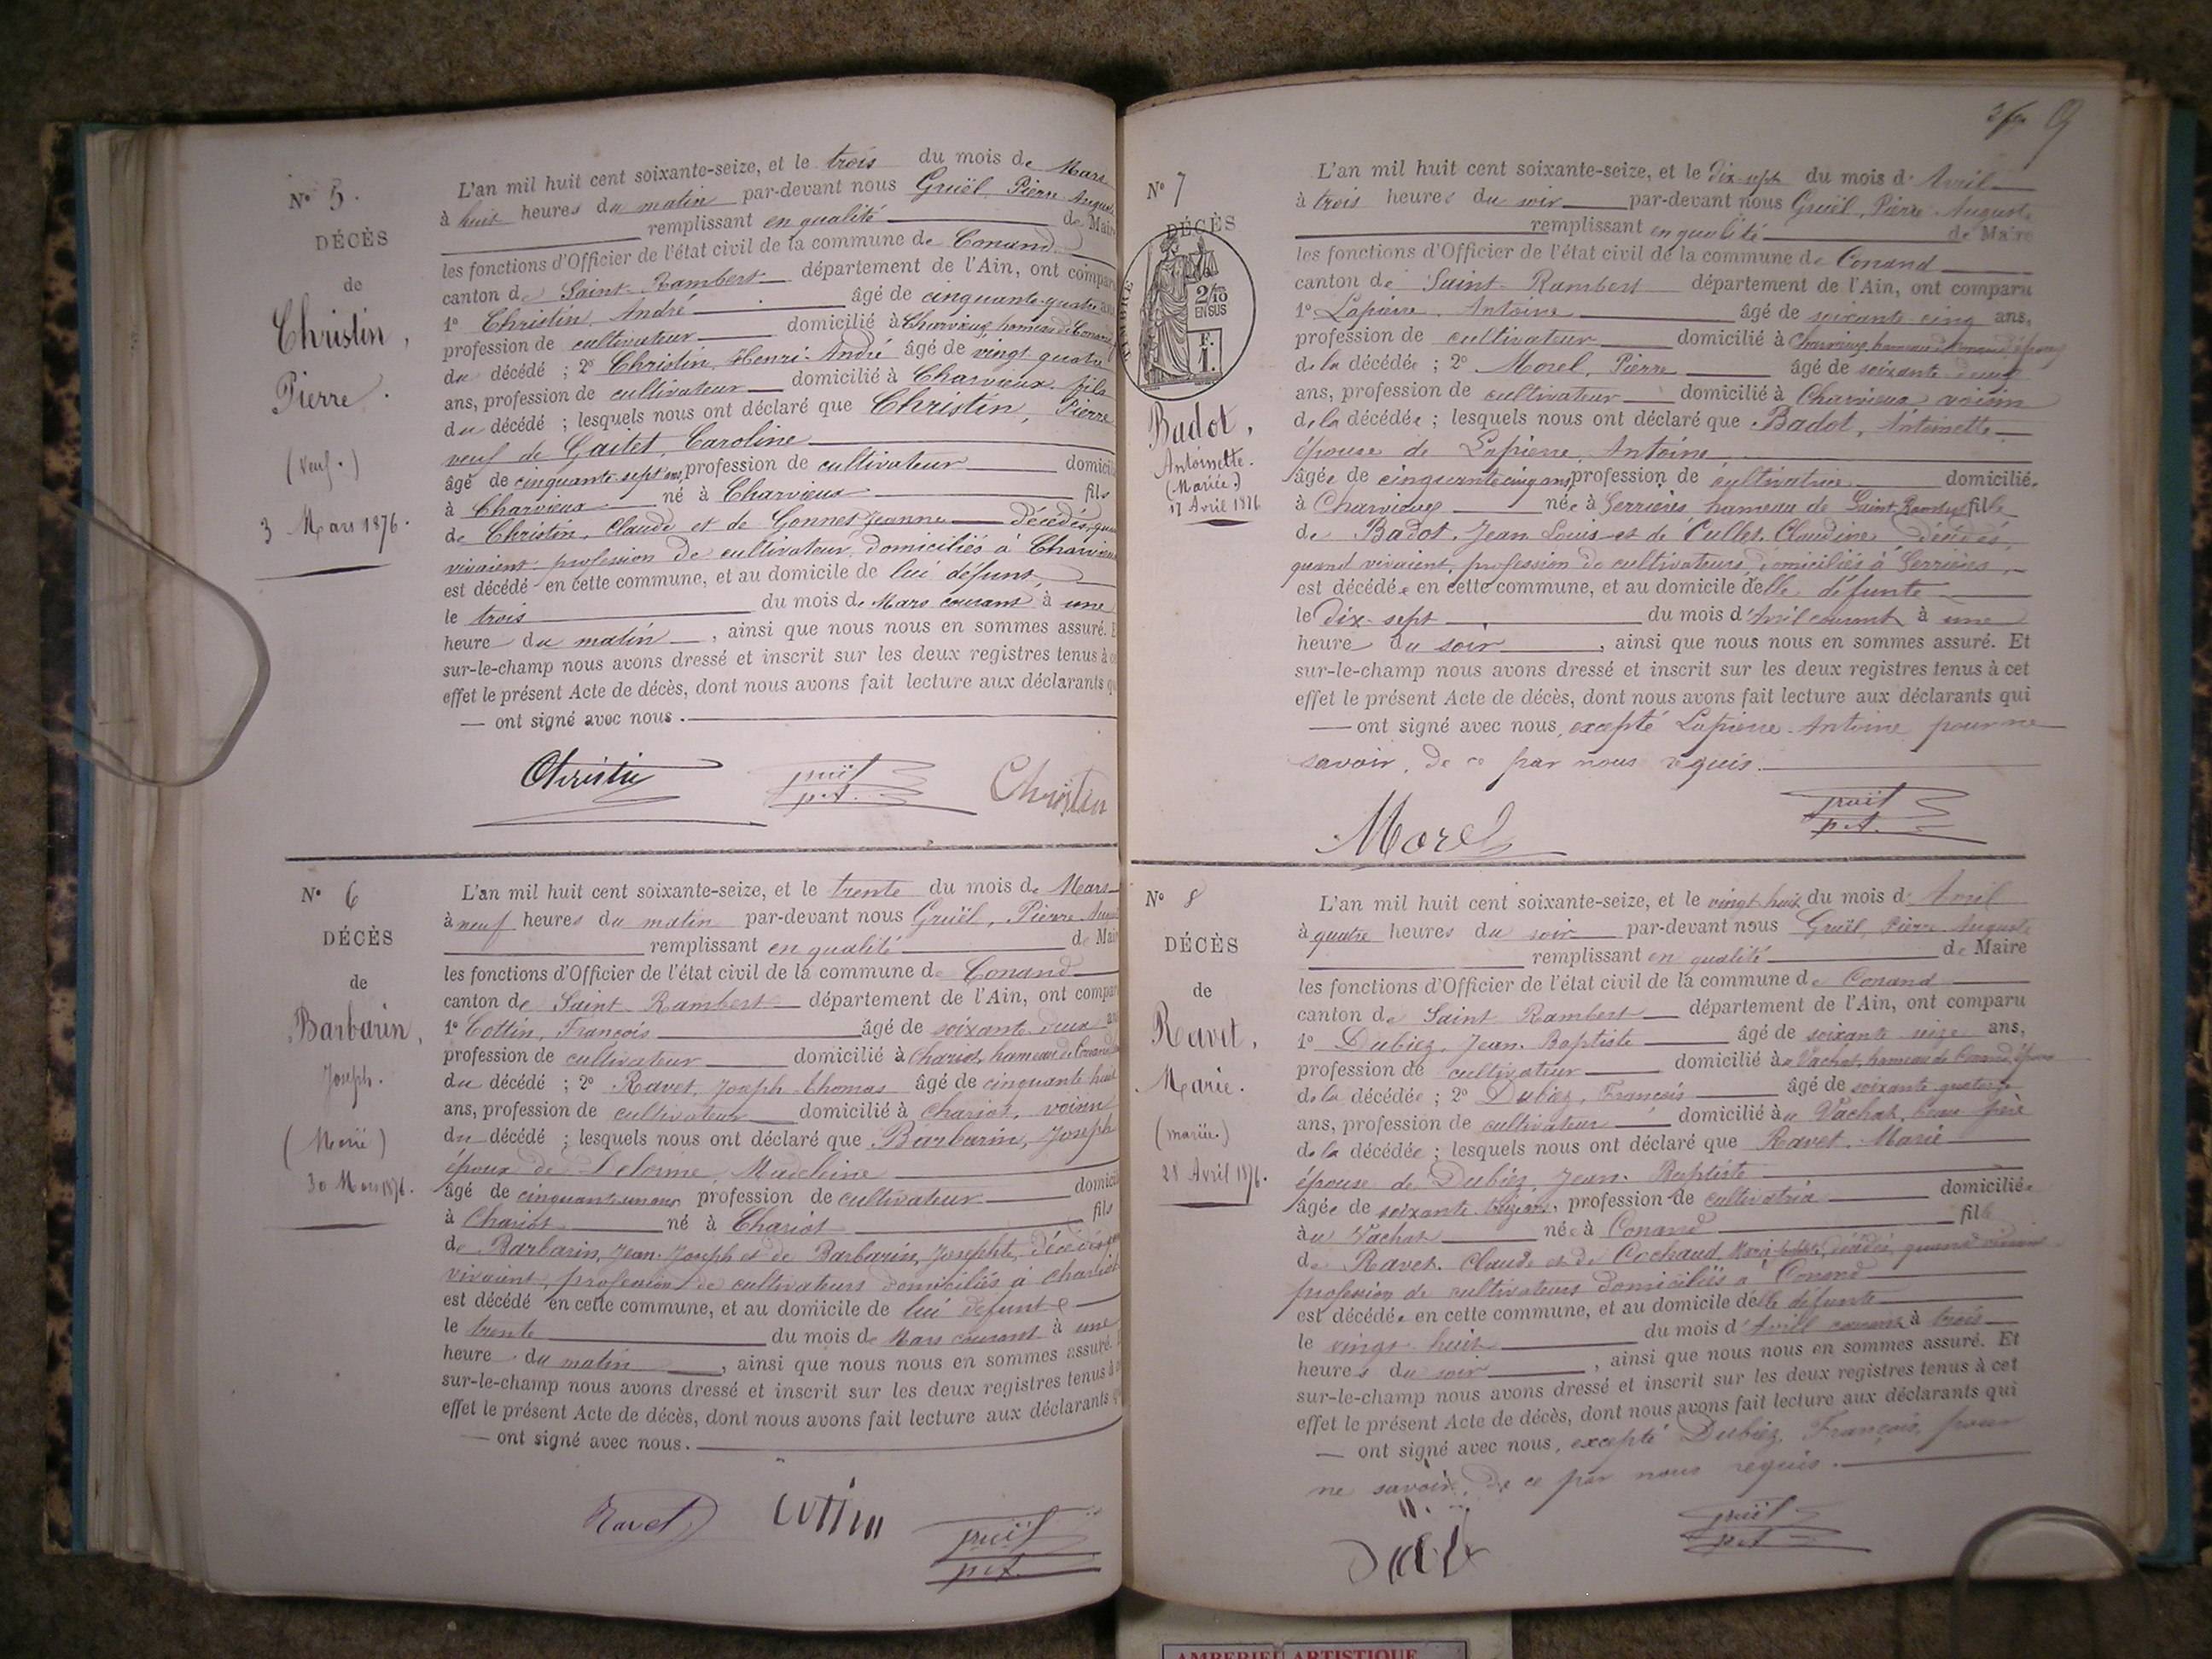 N° 5.
DÉCÈS
de
Christin,
Pierre.
(Veuf.)
3 Mars 1876.
L'an mil huit cent soixante-seize, et le trois du mois de Mars
à huit heures du matin par-devant nous Gruël, Pierre Auguste
remplissant en qualité de Maire
les fonctions d'Officier de l'état civil de la commune de Conand
canton de Saint-Rambert département de l'Ain, ont comparu
1° Christin, André âgé de cinquante-quatre ans
profession de cultivateur domicilié à Charvieux, hameau de Conand
du décédé ; 2° Christin, Henri-André âgé de vingt quatre
ans, profession de cultivateur domicilié à Charvieux fils
du décédé ; lesquels nous ont déclaré que Christin, Pierre
veuf de Gaitet, Caroline
âgé de cinquante sept ans, profession de cultivateur domicilié
à Charvieux né à Charvieux fils
de Christin, Claude et de Gonnet Jeanne décédés, quand
vivaient profession de cultivateur, domiciliés à Charvieux
est décédé en cette commune, et au domicile de lui défunt,
le trois du mois de Mars courant à une
heure du matin, ainsi que nous nous en sommes assuré. E
sur-le-champ nous avons dressé et inscrit sur les deux registres tenus à c
effet le présent Acte de décès, dont nous avons fait lecture aux déclarants q
— ont signé avec nous.
Christin
gruël
p.A.
Christin
N° 6
DÉCÈS
de
Barbarin,
Joseph.
(Marié)
30 Mars 1876.
L'an mil huit cent soixante-seize, et le trente du mois de Mars
à neuf heures du matin par-devant nous Gruël, Pierre Auguste
remplissant en qualité de Maire
les fonctions d'Officier de l'état civil de la commune de Conand
canton de Saint-Rambert département de l'Ain, ont comparu
1° Cottin, François âgé de soixante deux ans
profession de cultivateur domicilié à Chariot, hameau de Conand
du décédé ; 2° Ravet, Joseph-Thomas âgé de cinquante huit
ans, profession de cultivateur domicilié à Chariot, voisin
du décédé ; lesquels nous ont déclaré que Barbarin, Joseph
époux de Delorme, Madeleine
âgé de cinquante un ans profession de cultivateur domicilié
à Chariot né à Chariot fils
de Barbarin, Jean-Joseph et de Barbarin, Josephte, décédés
vivaient, profession de cultivateurs domiciliés à Chariot
est décédé en cette commune, et au domicile de lui défunt
le trente du mois de Mars courant à une
heure du matin, ainsi que nous nous en sommes assuré.
sur-le-champ nous avons dressé et inscrit sur les deux registres tenus à
effet le présent Acte de décès, dont nous avons fait lecture aux déclarants q
— ont signé avec nous.
Ravet
cottin
gruël
p.A.
9
N° 7
DÉCÈS
TIMBRE
2/10
EN SUS
F.
1.
Badot,
Antoinette.
(Mariée.)
17 Avril 1876
L'an mil huit cent soixante-seize, et le Dix-sept du mois d'Avril
à trois heures du soir par-devant nous Gruël, Pierre Auguste
remplissant en qualité de Maire
les fonctions d'Officier de l'état civil de la commune de Conand
canton de Saint-Rambert département de l'Ain, ont comparu
1° Lapierre, Antoine âgé de soixante-cinq ans,
profession de cultivateur domicilié à Charvieux, hameau de Conand époux
de la décédée ; 2° Morel, Pierre âgé de soixante deux
ans, profession de cultivateur domicilié à Charvieux voisin
de la décédée ; lesquels nous ont déclaré que Badot, Antoinette
épouse de Lapierre, Antoine
âgée de cinquante cinq ans, profession de cultivatrice domiciliée
à Charvieux née à Serrières, hameau de Saint-Rambert fille
de Badot, Jean Louis et de Cullet, Claudine, décédés,
quand vivaient, profession de cultivateurs, domiciliés à Serrières
est décédée en cette commune, et au domicile d'elle défunte
le Dix-sept du mois d'Avril courant à une
heure du soir, ainsi que nous nous en sommes assuré. Et
sur-le-champ nous avons dressé et inscrit sur les deux registres tenus à cet
effet le présent Acte de décès, dont nous avons fait lecture aux déclarants qui
— ont signé avec nous, excepté Lapierre Antoine pour ne
savoir, de ce par nous requis.
Morel
gruël
p.A.
N° 8
DÉCÈS
de
Ravet,
Marie.
(mariée.)
28 Avril 1876.
L'an mil huit cent soixante-seize, et le vingt-huit du mois d'Avril
à quatre heures du soir par-devant nous Gruël, Pierre Auguste
remplissant en qualité de Maire
les fonctions d'Officier de l'état civil de la commune de Conand
canton de Saint Rambert département de l'Ain, ont comparu
1° Dubiez, Jean-Baptiste âgé de soixante seize ans,
profession de cultivateur domicilié au Vachat, hameau de Conand, époux
de la décédée ; 2° Dubiez, François âgé de soixante quatorze
ans, profession de cultivateur domicilié au Vachat, beau frère
de la décédée ; lesquels nous ont déclaré que Ravet, Marie
épouse de Dubiez, Jean-Baptiste
âgée de soixante treize ans, profession de cultivatrice domiciliée
au Vachat née à Conand fille
de Ravet, Claude et de Cochaud, décédés, quand vivaient
profession de cultivateurs domiciliés à Conand
est décédée en cette commune, et au domicile d'elle défunte
le vingt-huit du mois d'Avril courant à trois
heures du soir, ainsi que nous nous en sommes assuré. Et
sur-le-champ nous avons dressé et inscrit sur les deux registres tenus à cet
effet le présent Acte de décès, dont nous avons fait lecture aux déclarants qui
— ont signé avec nous, excepté Dubiez, François, pour
ne savoir, de ce par nous requis.
gruël
p.A.
AMBERIEU ARTISTIQUE